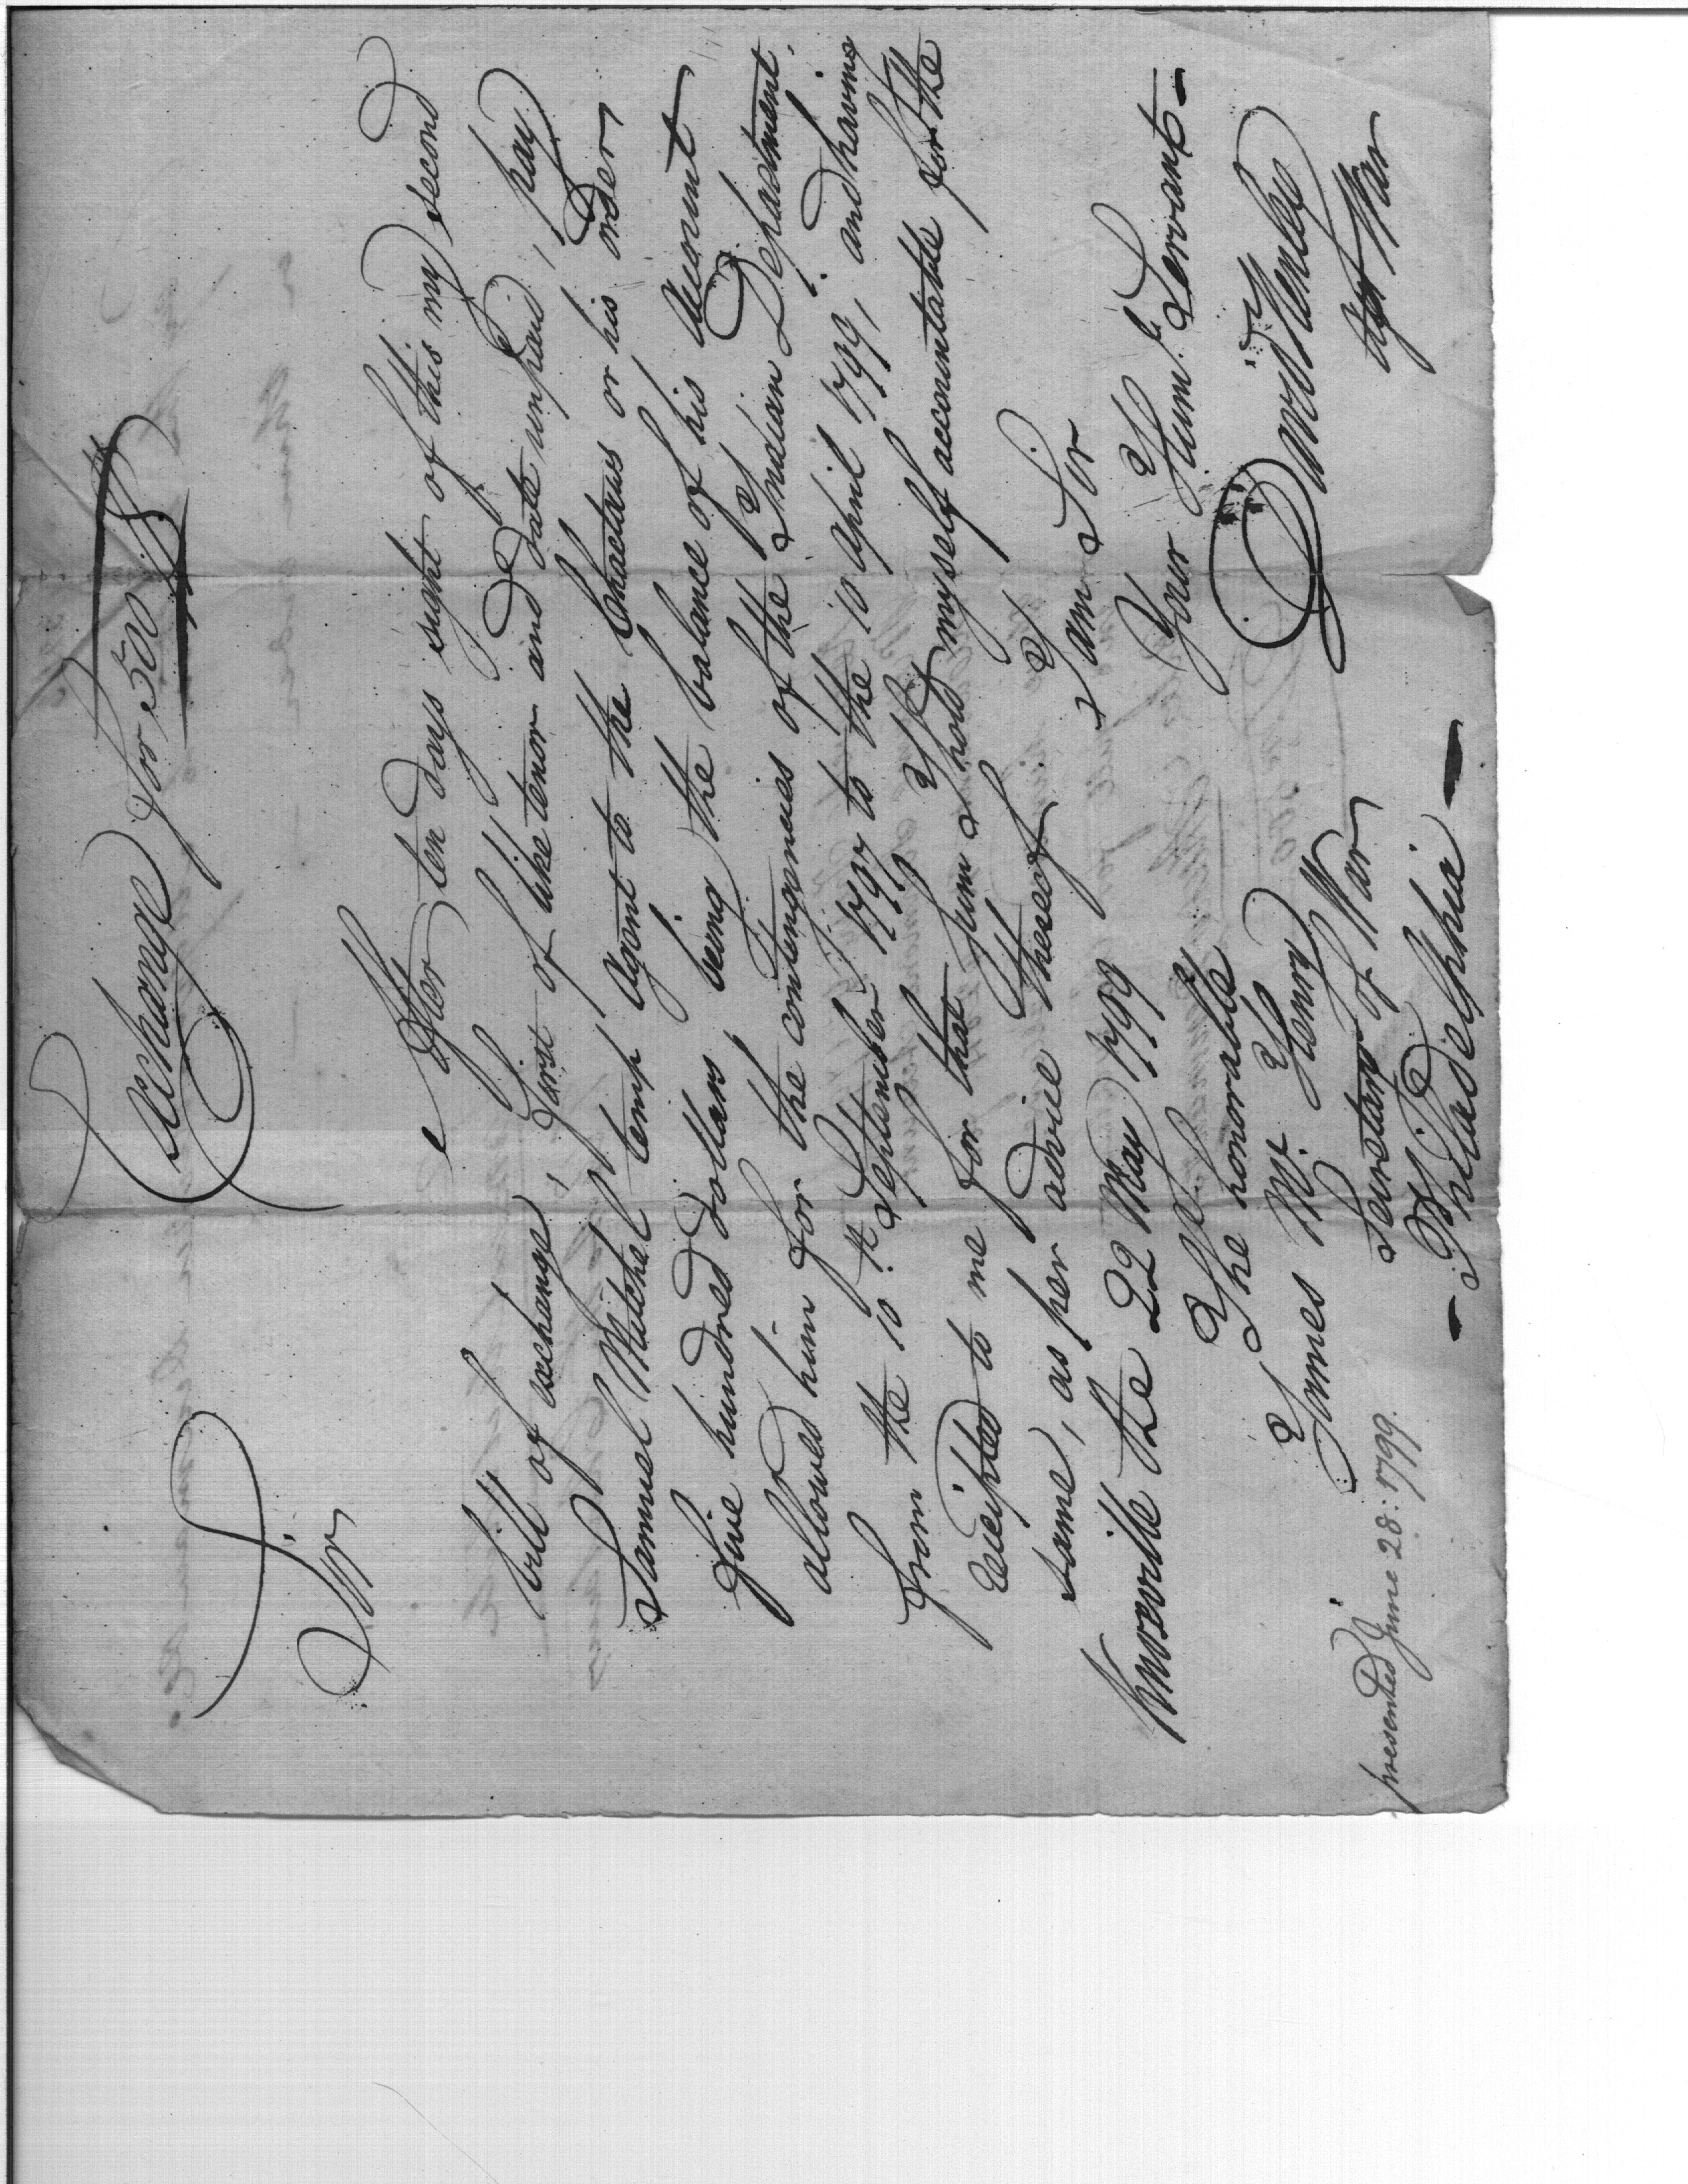 Exchange for 500 Drs
Sir
After ten days sight of this my second
bill of exchange, first of like tenor and date unpaid, pay
Samuel Mitchel temp Agent to the Chactaws or his order
five hundred dollars, being the balance of his account
allowed him for the contengencies of the Indian Department.
from the 10th September 1797 to the 10 April 1799, and having
receipted to me for that sum I hold myself accountable for the
same, as per advice thereof
I am Sir
Knoxville the 22 May 1799
Your Hum.le Servant -
The honorable
James Mc Henry
David Henley
Secretary of War
agt War
- Philadelphia -
presented June 28: 1799.